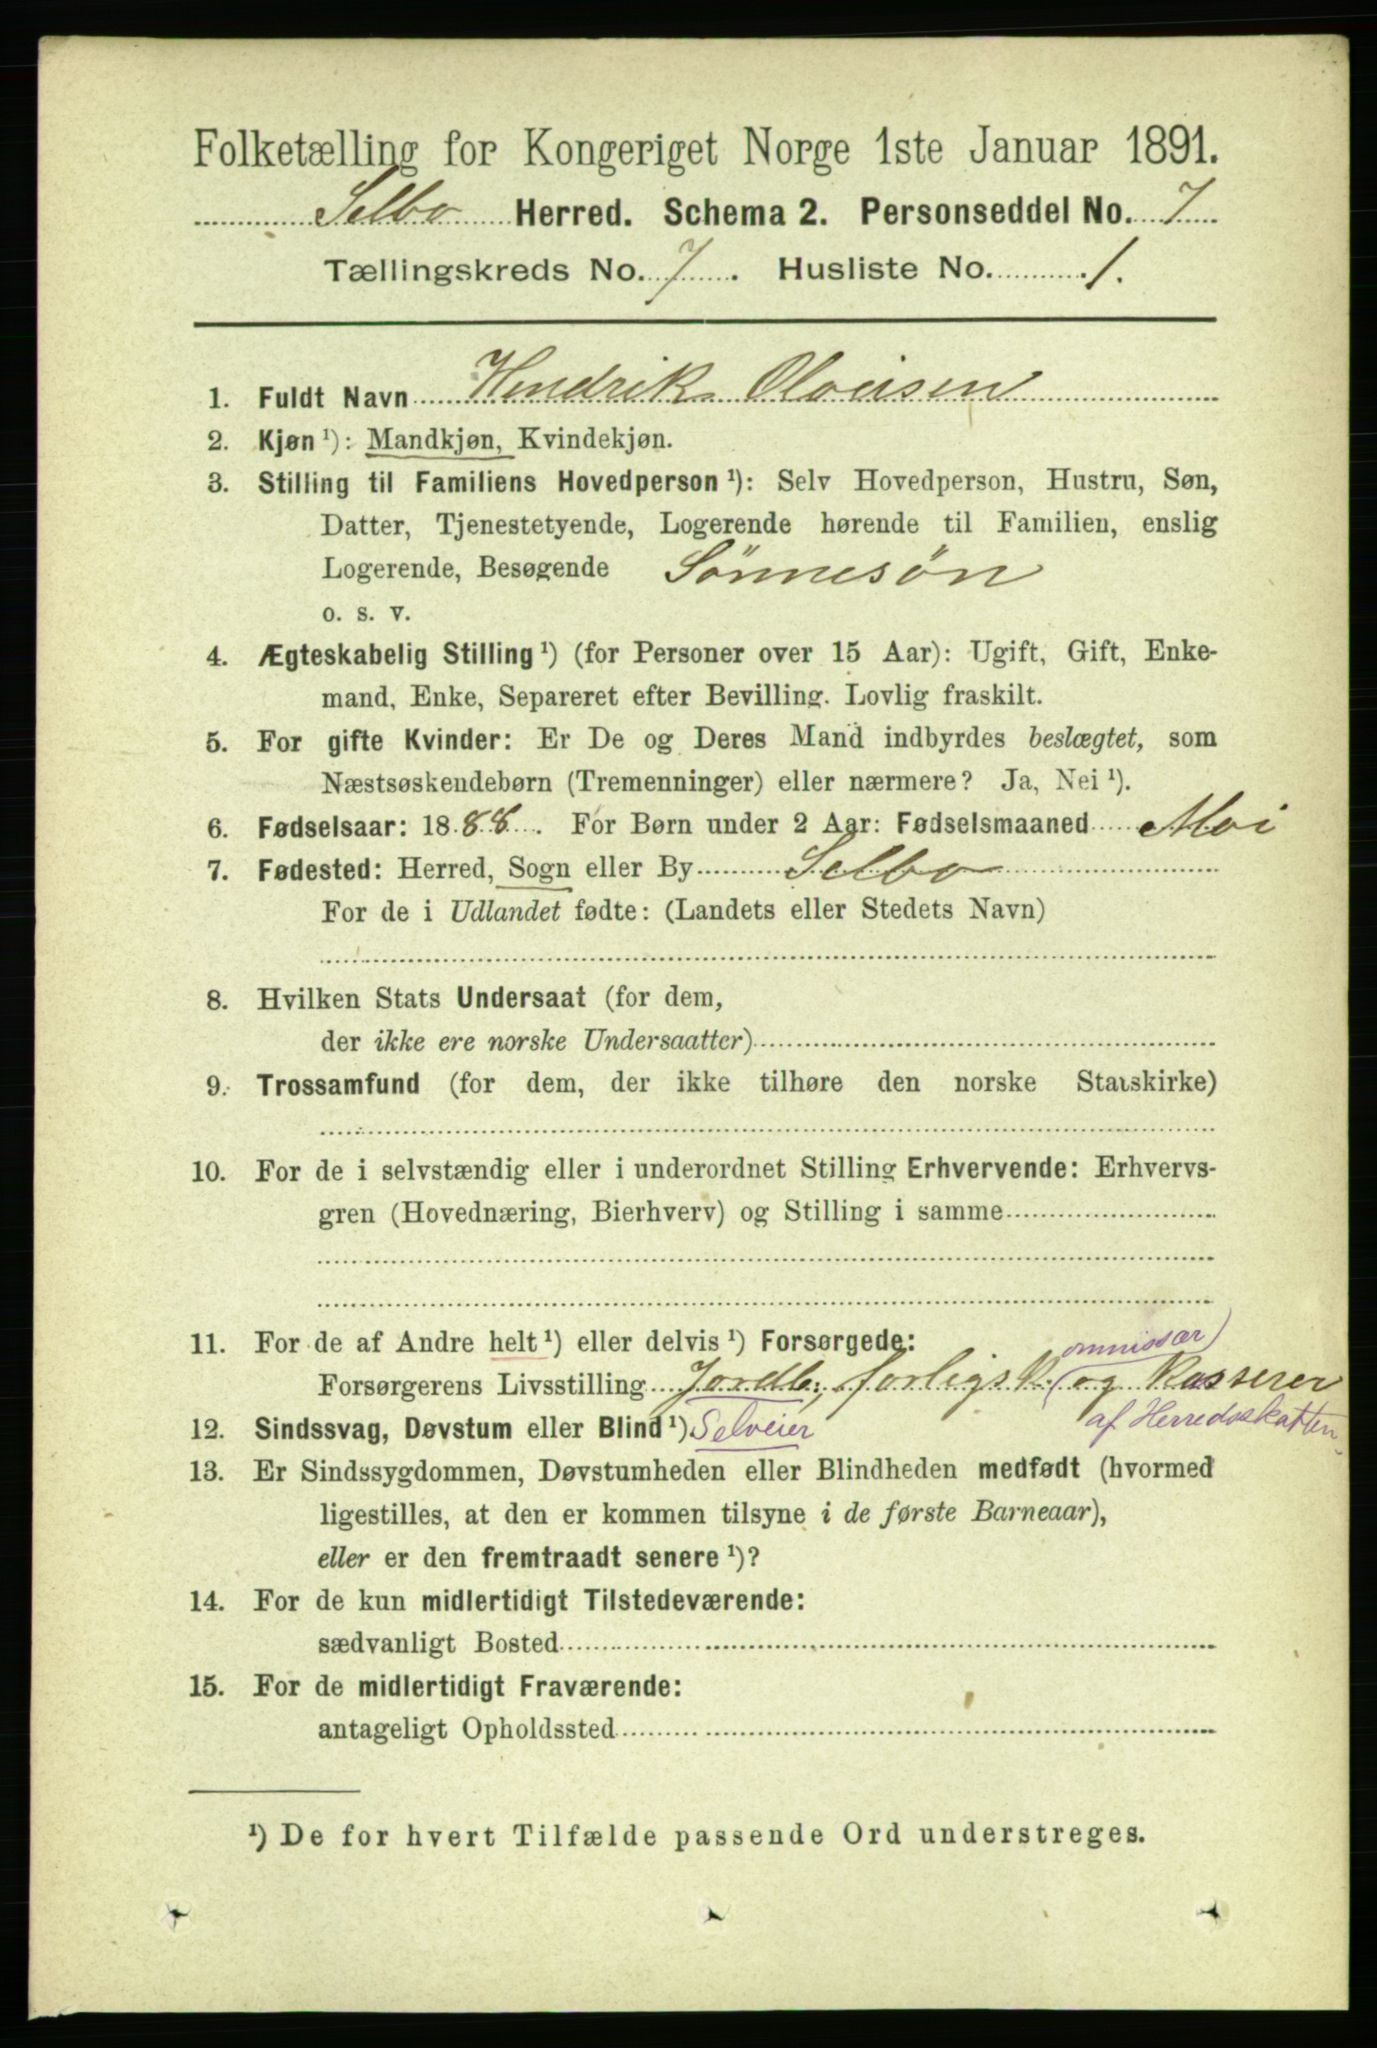 Folketælling for Kongeriget Norge 1ste Januar 1891.
Selbo Herred. Schema 2. Personseddel No. 7
Tællingskreds No. 7. Husliste No. 1.
1. Fuldt Navn Hendrik Olovisen
2. Kjøn ¹): Mandkjøn, Kvindekjøn.
3. Stilling til Familiens Hovedperson ¹): Selv Hovedperson, Hustru, Søn,
Datter, Tjenestetyende, Logerende hørende til Familien, enslig
Logerende, Besøgende Sönnesön
o. s. v.
4. Ægteskabelig Stilling ¹) (for Personer over 15 Aar): Ugift, Gift, Enke-
mand, Enke, Separeret efter Bevilling. Lovlig fraskilt.
5. For gifte Kvinder: Er De og Deres Mand indbyrdes beslægtet, som
Næstsøskendebørn (Tremenninger) eller nærmere? Ja, Nei ¹).
6. Fødselsaar: 1888. For Børn under 2 Aar: Fødselsmaaned Mai
7. Fødested: Herred, Sogn eller By Selbo
For de i Udlandet fødte: (Landets eller Stedets Navn)
8. Hvilken Stats Undersaat (for dem,
der ikke ere norske Undersaatter)
9. Trossamfund (for dem, der ikke tilhøre den norske Statskirke)
10. For de i selvstændig eller i underordnet Stilling Erhvervende: Erhvervs-
gren (Hovednæring, Bierhverv) og Stilling i samme
11. For de af Andre helt ¹) eller delvis ¹) Forsørgede:
ommissær)
Forsørgerens Livsstilling Jordb:, forligsk. (og Kasserer
af Herredsskatten.
12. Sindssvag, Døvstum eller Blind ¹) Selveier
13. Er Sindssygdommen, Døvstumheden eller Blindheden medfødt (hvormed
ligestilles, at den er kommen tilsyne i de første Barneaar),
eller er den fremtraadt senere ¹)?
14. For de kun midlertidigt Tilstedeværende:
sædvanligt Bosted
15. For de midlertidigt Fraværende:
antageligt Opholdssted
¹) De for hvert Tilfælde passende Ord understreges.